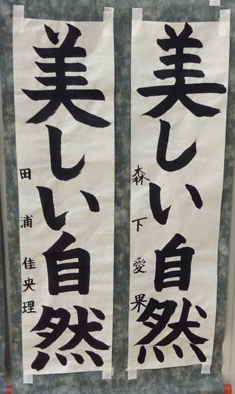 美しい自然
森下愛果
美しい自然
田浦佳央理